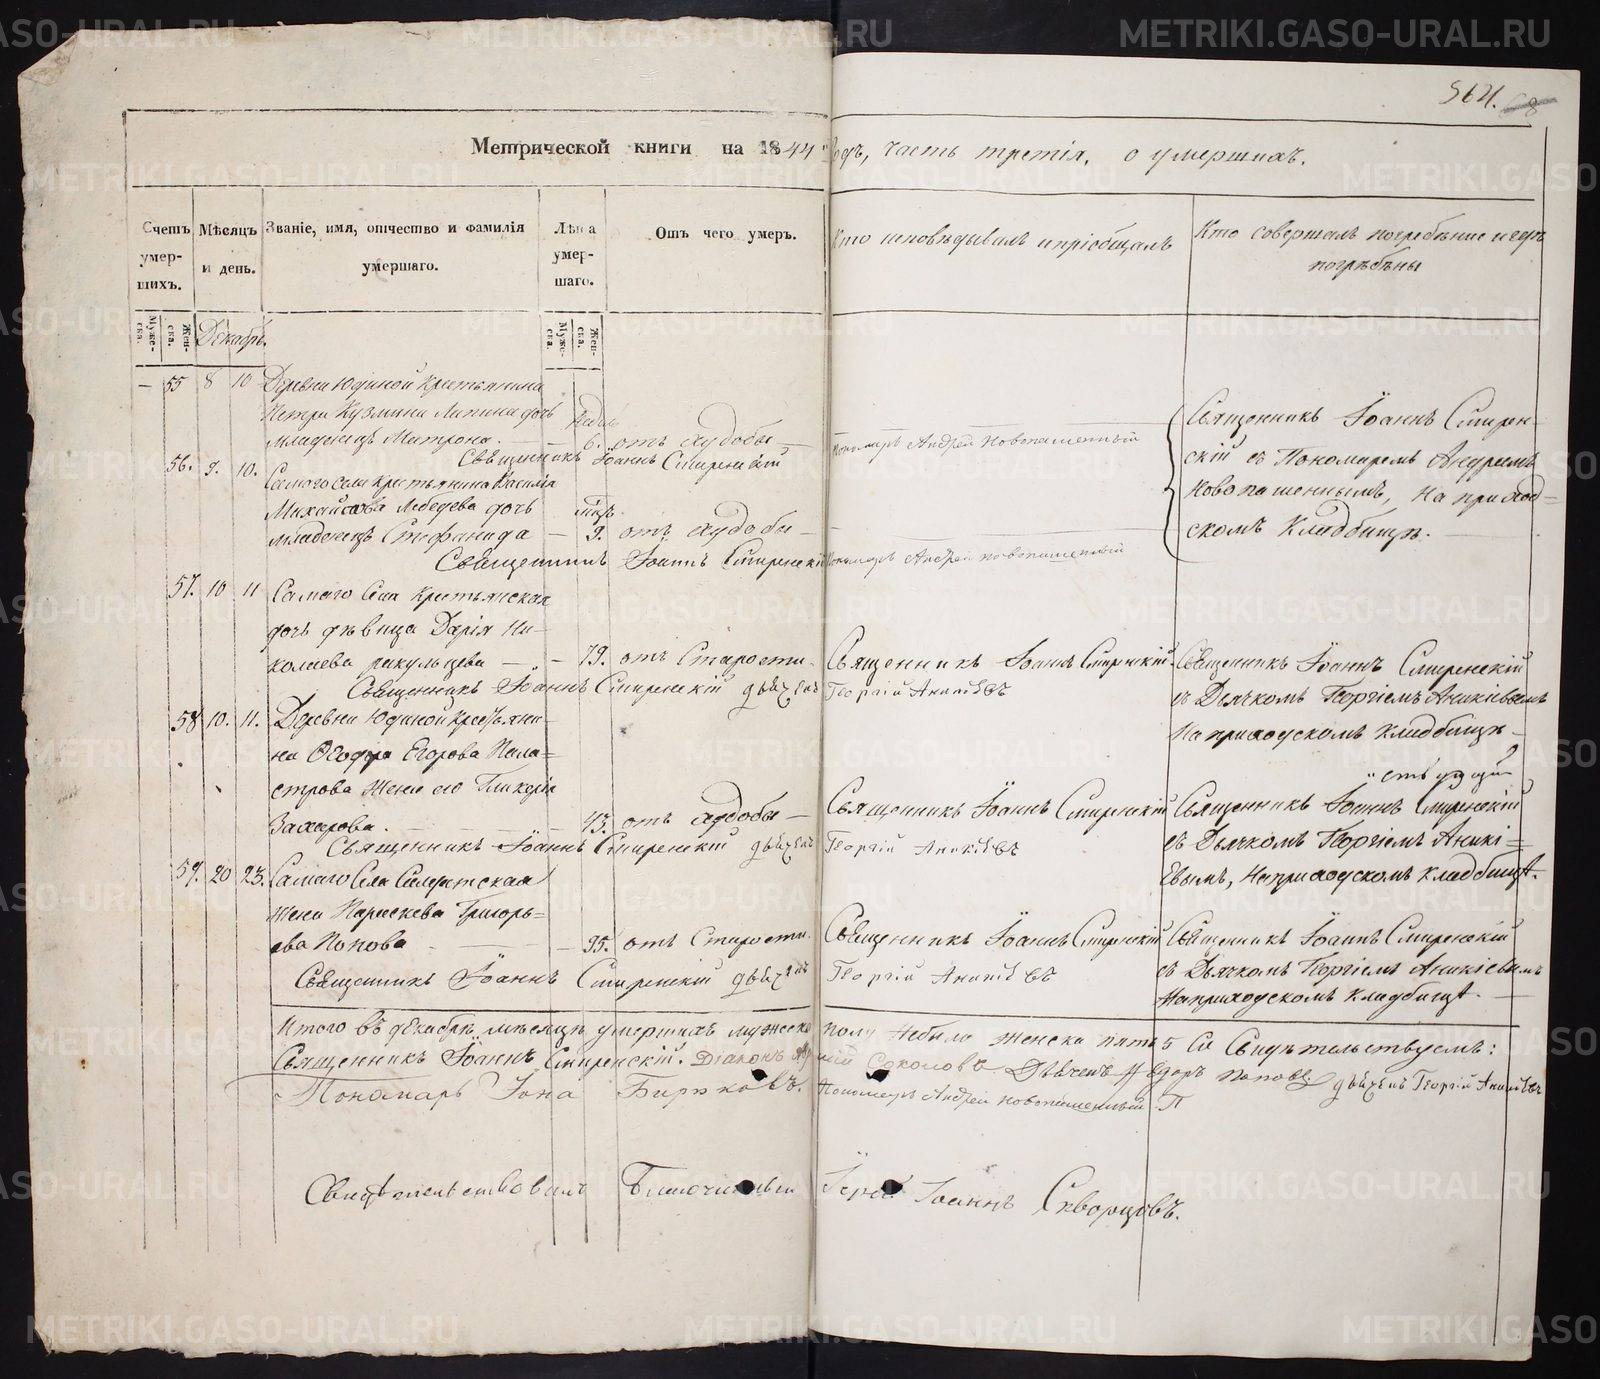 564. 8
Метрической книги на 1844 годъ, часть третія, о умершихъ.
Счетъ умер- шихъ.
Мѣсяцъ и день.
Званіе, имя, отчество и фамилія умершаго.
Лѣта умер- шаго.
Отъ чего умеръ.
Кто исповѣдывалъ и пріобщалъ
Кто совершалъ погребеніе и гдѣ погребѣны
Муже- ска. Жен- ска.
Декабрь.
Муже- ска. Жен- ска.
— 55 8 10 Деревни Юдиной крестьянина
Петра Кузмина Лапина дочь
младенецъ Матрона. — 6. отъ худобы —
Священникъ Іоаннъ Смиренскій Пономарь Андрей Новопашенный
Священникъ Іоаннъ Смирен-
скій съ Пономаремъ Андреемъ
Новопашеннымъ, на приход-
скомъ кладбищѣ.
56. 9. 10. Самаго села крестьянина Василія
Михайлова Лебедева дочь
младенецъ Стефанида — 9. отъ худобы —
Священникъ Іоаннъ Смиренскій Пономарь Андрей Новопашенный
57. 10 11 Самаго села крестьянская
дочь дѣвица Дарія Ни-
колаева — 79. отъ старости.
Священникъ Іоаннъ Смиренскій дьячекъ Георгій Аникіевъ
Священникъ Іоаннъ Смиренскій
Священникъ Іоаннъ Смиренскій
съ Дьячкомъ Георгіемъ Аникіевымъ
на приходскомъ кладбищѣ —
58 10. 11. Деревни Юдиной крестьяни-
на Ѳеодора Егорова Пала-
строва жена его Гликерія
Захарова. — 43. отъ худобы —
Священникъ Іоаннъ Смиренскій дьячекъ Георгій Аникіевъ
Священникъ Іоаннъ Смиренскій
Священникъ Іоаннъ Смиренскій
съ Дьячкомъ Георгіемъ Аникі-
евымъ, на приходскомъ кладбищѣ.
59. 20 23. Самаго села солдатская
жена Параскева Григорь-
ева Попова — 95. отъ старости.
Священникъ Іоаннъ Смиренскій дьячекъ Георгій Аникіевъ
Священникъ Іоаннъ Смиренскій
Священникъ Іоаннъ Смиренскій
съ Дьячкомъ Георгіемъ Аникіевымъ
на приходскомъ кладбищѣ.
Итого въ декабрѣ мѣсяцѣ умершихъ мужеска полу небыло женска пять 5 Въ свидѣтельствуемъ:
Священникъ Іоаннъ Смиренскій. Діаконъ Соколовъ Дьячекъ Ѳедоръ Поповъ дьячекъ Георгій Аникіевъ
Пономарь Іона Бирюковъ. Пономарь Андрей Новопашенный
Свидѣтельствовалъ Благочинный Іерей Іоаннъ Скворцовъ.
METRIKI.GASO-URAL.RU